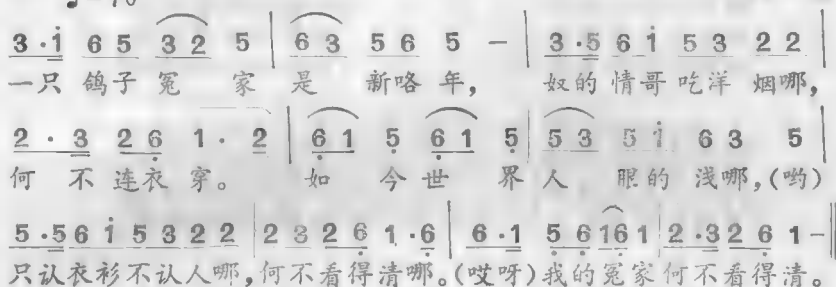 3·i 65 32 5 | 63 56 5 – | 3·5 6i 53 22 |
一只 鸽子 冤 家 是 新咯 年, 奴的 情哥 吃洋 烟哪,
2·3 26 1·2 | 61 5 61 5 | 53 5i 63 5 |
何 不 连衣 穿。 如 今 世 界 人 眼的 浅哪,(哟)
5·5 6i 53 22 | 23 26 1·6 | 6·1 56 161 | 2·3 26 1 – ‖
只认衣衫不认人哪,何不看得清哪。(哎呀)我的冤家何不看得清。